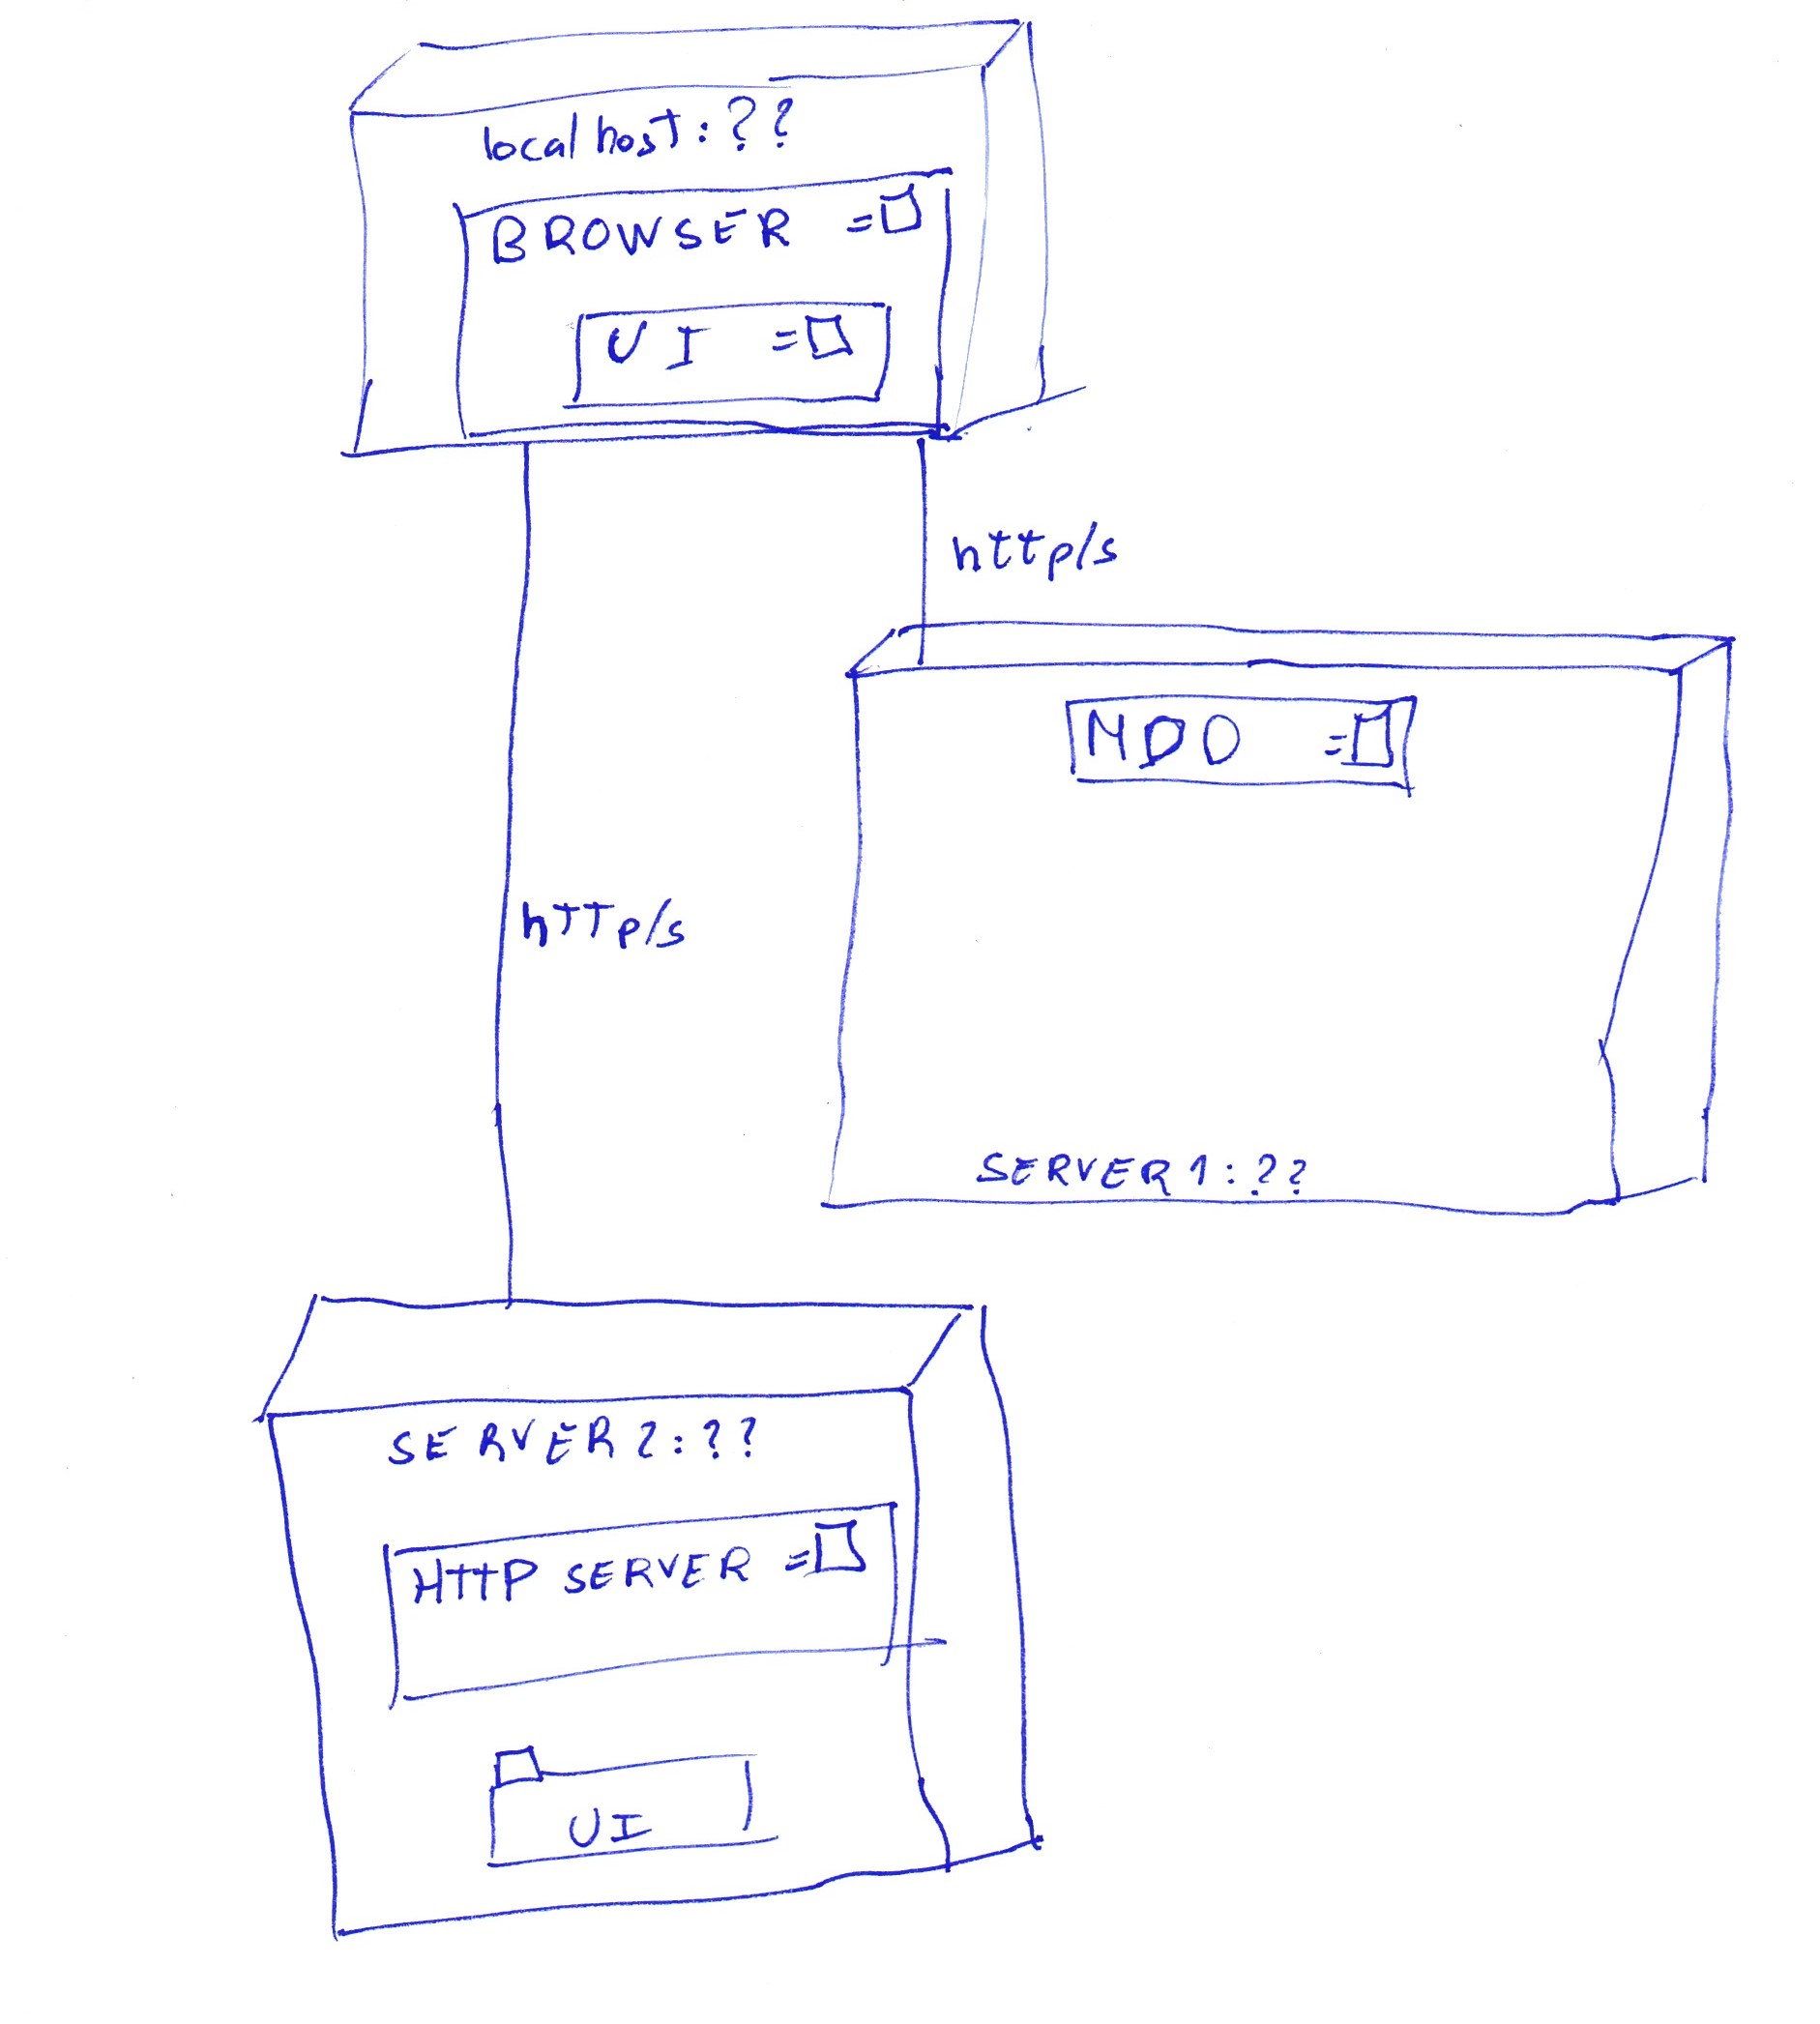 localhost:??
BROWSER
UI
http/s
MDD
http/s
SERVER1:??
SERVER2:??
HTTP SERVER
UI